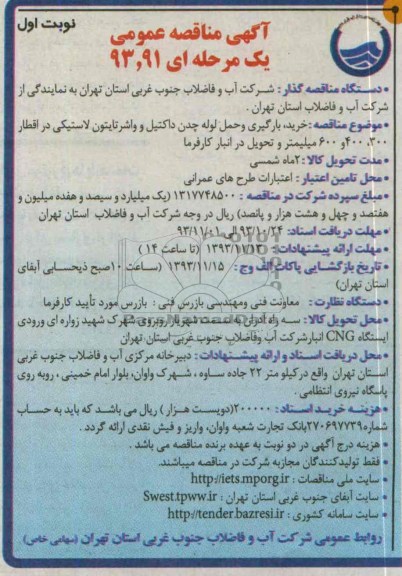 نوبت اول
آگهی مناقصه عمومی
یک مرحله ای ۹۳,۹۱
• دستگاه مناقصه گذار : شرکت آب و فاضلاب جنوب غربی استان تهران به نمایندگی از
شرکت آب و فاضلاب استان تهران .
• موضوع مناقصه :خرید، بارگیری وحمل لوله چدن داکتیل و واشرتایتون لاستیکی در اقطار
۴۰۰،۳۰۰و ۶۰۰ میلیمتر و تحویل در انبار کارفرما
• مدت تحویل کالا : ۲ماه شمسی
• محل تامین اعتبار : اعتبارات طرح های عمرانی
• مبلغ سپرده شرکت در مناقصه : ۱۳۱۷۷۴۸۵۰۰ (یک میلیارد و سیصد و هفده میلیون و
هفتصد و چهل و هشت هزار و پانصد) ریال در وجه شرکت آب و فاضلاب استان تهران
• مهلت دریافت اسناد: ۹۳/۱۰/۲۴ الی ۹۳/۱۱/۰۱
• مهلت ارائه پیشنهادات : ۱۳۹۳/۱۱/۱۳ (تا ساعت ۱۴ )
• تاریخ بازگشایی پاکات الف وج : ۱۳۹۳/۱۱/۱۵ (ساعت ۱۰صبح ذیحسابی آبفای
استان تهران)
• دستگاه نظارت : معاونت فنی ومهندسی بازرس فنی : بازرس مورد تأیید کارفرما
• محل تحویل کالا : سه راه آدران به سمت شهریار روبروی شهرک شهید زواره ای ورودی
ایستگاه CNG انبارشرکت آب وفاضلاب جنوب غربی استان تهران
• محل دریافت اسناد و ارائه پیشنهادات : دبیرخانه مرکزی آب و فاضلاب جنوب غربی
استان تهران واقع درکیلو متر ۲۲ جاده ساوه ، شهرک واوان، بلوار امام خمینی ، روبه روی
پاسگاه نیروی انتظامی .
• هزینه خرید اسناد : ۲۰۰۰۰۰(دویست هزار ) ریال می باشد که باید به حساب
شماره۲۷۰۶۹۷۷۳۹بانک تجارت شعبه واوان، واریز و فیش نقدی ارائه گردد .
• هزینه درج آگهی در دو نوبت به عهده برنده مناقصه می باشد .
• فقط تولیدکنندگان مجازبه شرکت در مناقصه میباشند.
• سایت ملی مناقصات : http://iets.mporg.ir
• سایت آبفای جنوب غربی استان تهران : Swest.tpww.ir
• سایت سامانه کشوری : http://tender.bazresi.ir
روابط عمومی شرکت آب و فاضلاب جنوب غربی استان تهران (سهامی خاص)